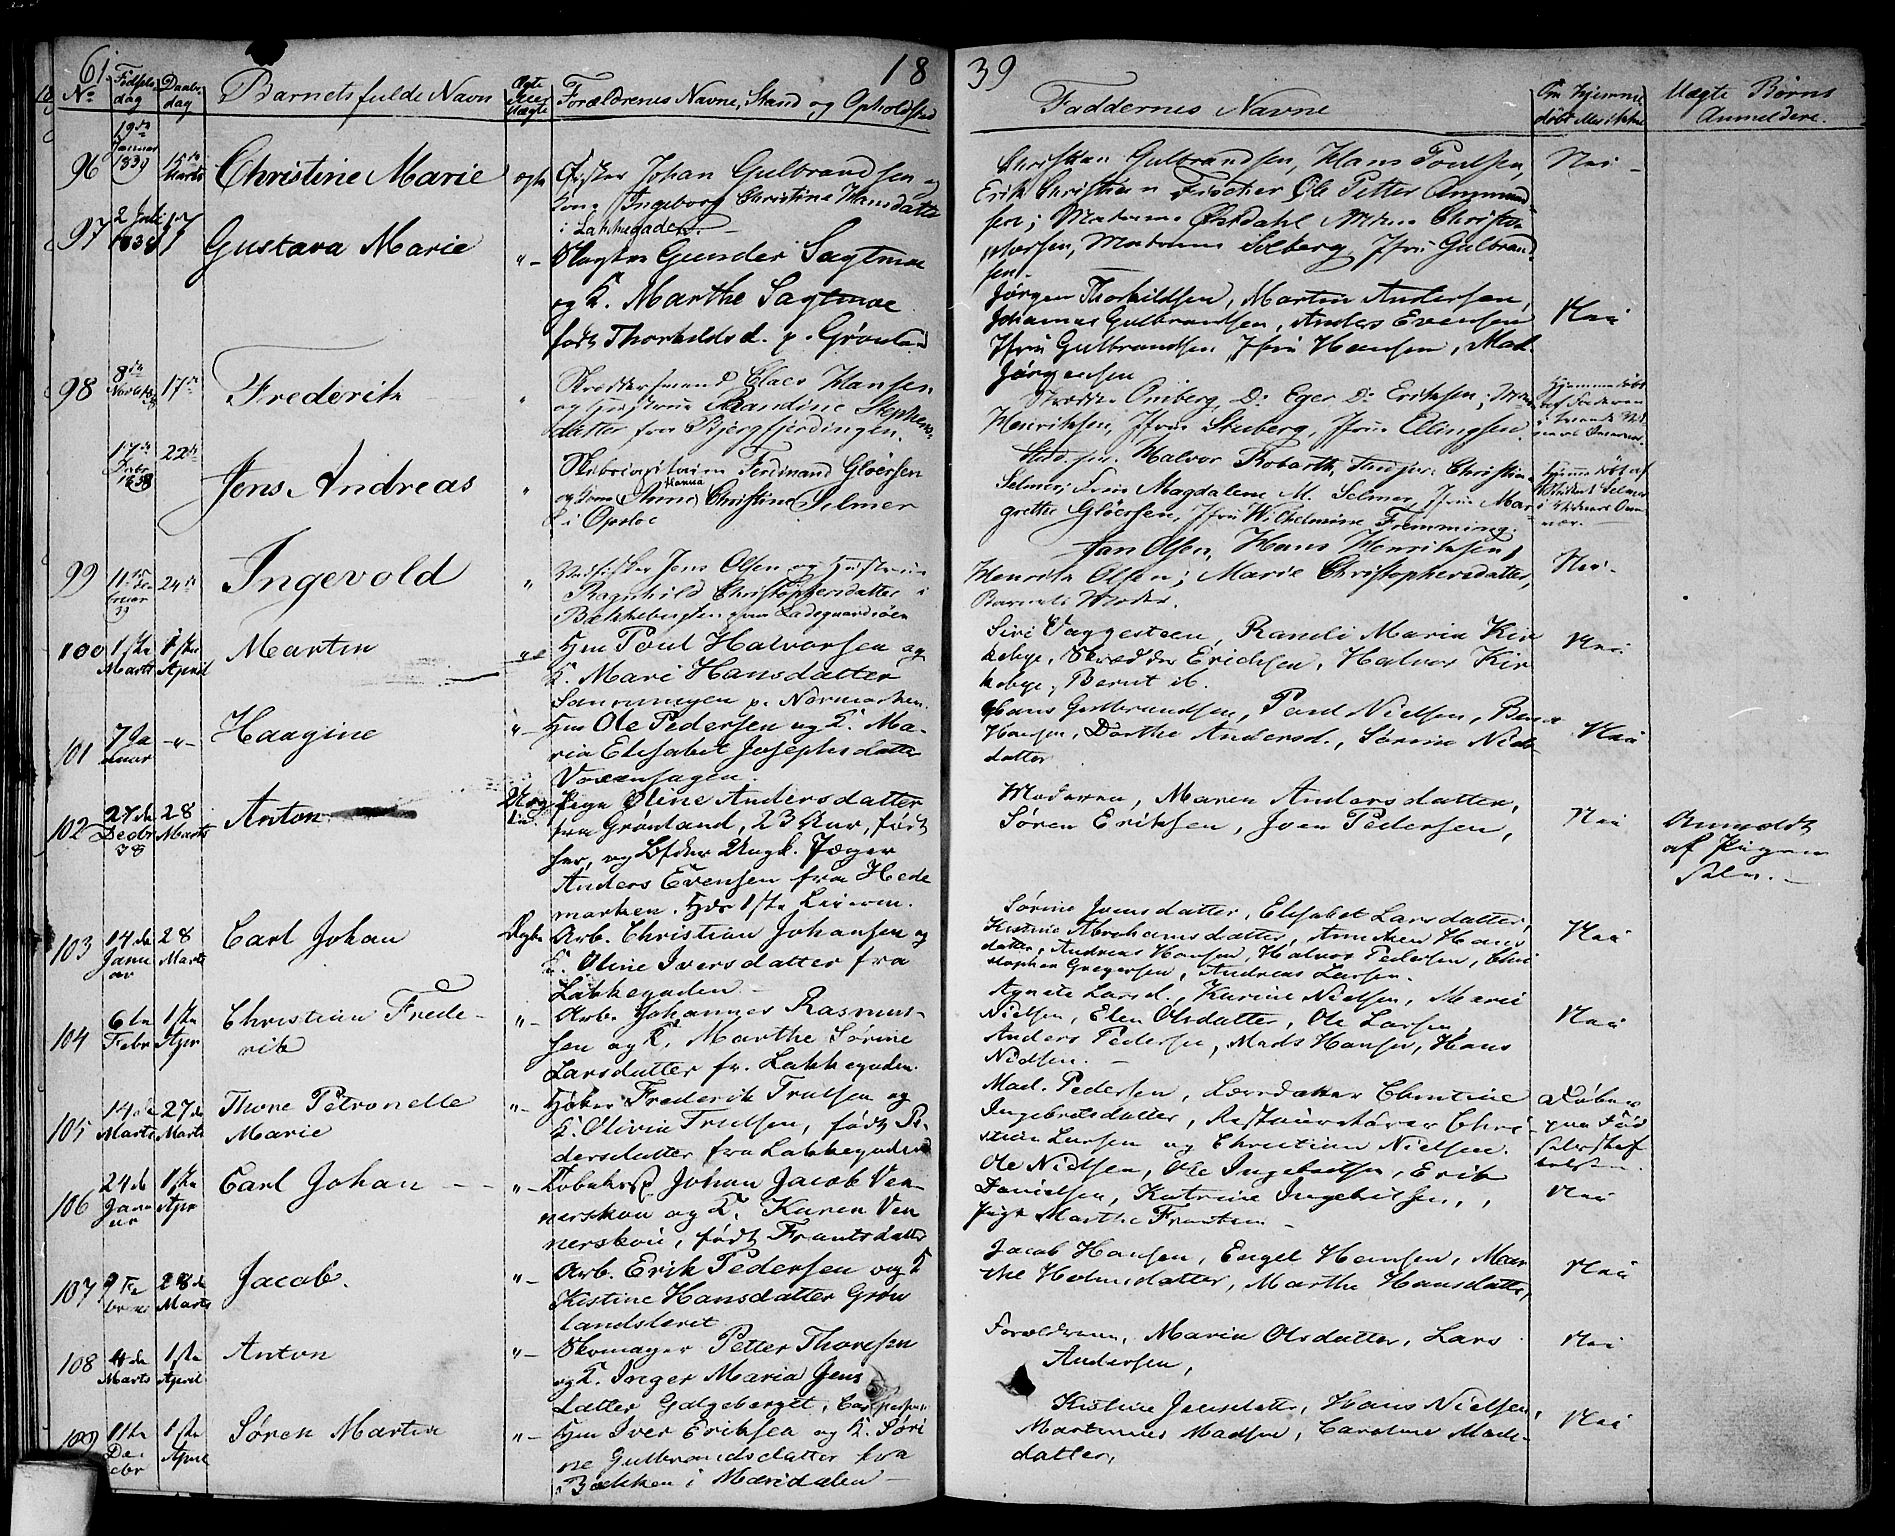 61. 18 39
No Fødsels dag Daabs dag Barnets fulde Navn Ægte eller Uægte Forældrenes Navne, Stand og Opholdsted Faddernes Navne Om hjemmedøbt eller ikke Uægte Børns Anmeldere.
96 19de Januar 1839 15de Marts Christine Marie ægte Fisker Johan Gulbrandsen og
Kone Ingeborg Christine Hansdatter
i Lakkegaden.
Christian Gulbrandsen, Hans Poulsen,
Erik Christian Fischer Ole Petter Ammund
sen; Madame Østdahl Christo
phersen, Madame Solberg, Jfru Gulbrand
sen.
Nei
97 2 Juli 1838 17 Gustava Marie "- Gunder Sagtmoe
og K. Marthe Sagtmoe
født Thorkildsd. p. Grønland
Jørgen Thorkildsen, Martin Andersen,
Johannes Gulbrandsen, Anders Evensen
Jfru Gulbrandsen Jfru Hansen, Mad.
Jørgensen
Nei
98 8de 17de Frederik " Skræddersvend Claes Hansen
og Hustrue Randine Stephens
datter fra Bjergfjerdingen.
Eger D: Eriksen,
Henriksen, Jfru Stuberg, Jfru Ellingsen.
17de Decbr 1838 22de Jens Andreas " Ferdinand Gløersen
og Kone Anne Hanna Christine Selmer
i Opsloe
Halvor Christian
Selmer, Frue Magdalene M. Selmer, Jfru Mar
grethe Gløersen, Jfru Wilhelmine Flemming.
99 11te Februar 39 24de Ingevold " Jens Olsen og Hustrue
Ragnhild Christophersdatter i
Bækkebugten paa Ladegaardsøen
Jan Olsen, Hans Henriksen,
Henrik Olsen; Marie Christophersdatter,
Barnets Moder.
Nei.
100 1ste Marts 1ste April Martin Hm Poul Halvorsen og
K. Mari Hansdatter
p. Normarken.
Siri Vaggesteen, Randi Maria Kir
kebye, Skrædder Erichsen, Halvor Kir
kebye, Bernt ib.
Nei
101 7 Januar -"- Haagine "- Hm Ole Pedersen og K. Ma-
ria Elisabet Josephsdatter
Voxenhagen.
Hans Gulbrandsen, Poul Nielsen,
Hansen, Dorthe Andersd., Sørine Niels
datter
Nei
102 27de Decbr 38 28 Marts Anton Pige Oline Andersdatter
fra Grønland, 23 Aar, født
her, og Lifder Ungk. Jæger
Anders Evensen fra Hede
marken.
Moderen, Maren Andersdatter,
Søren Eriksen, Iver Pedersen,
Nei
Anmeldt
af Pigen
selv.
103 14de Januar 28 Marts Carl Johan Ægte Arb. Christian Johansen og
K. Oline Iversdatter fra
Lakkegaden
Sørine Jonsdatter, Elisabet Larsdatter,
Kistine Abrahamsdatter, Anniken Hans
datter, Andreas Hansen, Halvor Pedersen, Chri
stopher Gregersen, Andreas Larsen.
Nei
104 6te Febr 1ste Apr Christian Frede-
rik
"- Arb. Johannes Rasmus-
sen og K. Marthe Sørine
Larsdatter fr. Lakkegaden.
Agnete Larsd., Karine Nielsen, Marie
Nielsen, Elen Olsdatter, Ole Larsen,
Anders Pedersen, Mads Hansen, Hans
Nielsen.
Nei
105 14de Marts 27de Marts Thone Petronelle
Marie
"- Høker Frederik Trulsen og
K. Olivia Trulsen, født Pe
dersdatter fra Lakkegaden
Mad. Pedersen, Clentine
Ingebretsdatter, Restaurateur Chri
stian Larsen og Christian Nielsen.
Døbes
paa Fød
selsstif
telsen.
106 24de Januar 1ste Apr Carl Johan "- Johan Jacob Ven
nerskou og K. Karen Ven
nerskou, født Frantsdatter
Ole Nielsen, Ole Ingebretsen, Erik
Danielsen, Katrine Ingebretsen,
Pige Marthe Frantsen
Nei
107 9 Februar 28de Marts Jacob. "- Arb. Erik Pedersen og K
Kistine Hansdatter Grøn
landsleret
Jacob Hansen, Engel Hansen, Mar
the Holmsdatter, Marthe Hansdatter,
Nei
108 4de Marts 1ste April Anton "- Skomager Petter Thoresen
og K. Inger Maria Jens
datter Galgeberget,
Forældrene, Maria Olsdatter, Lars
Andersen,
Nei
109 11te Decebr 1ste April Søren Martin "- Hm Iver Eriksen og K. Søri
ne Gulbrandsdatter fra
Bækken i Maridalen
Kistine Jensdatter, Hans Nielsen,
Martinus Madsen, Caroline Mads-
datter,
Nei